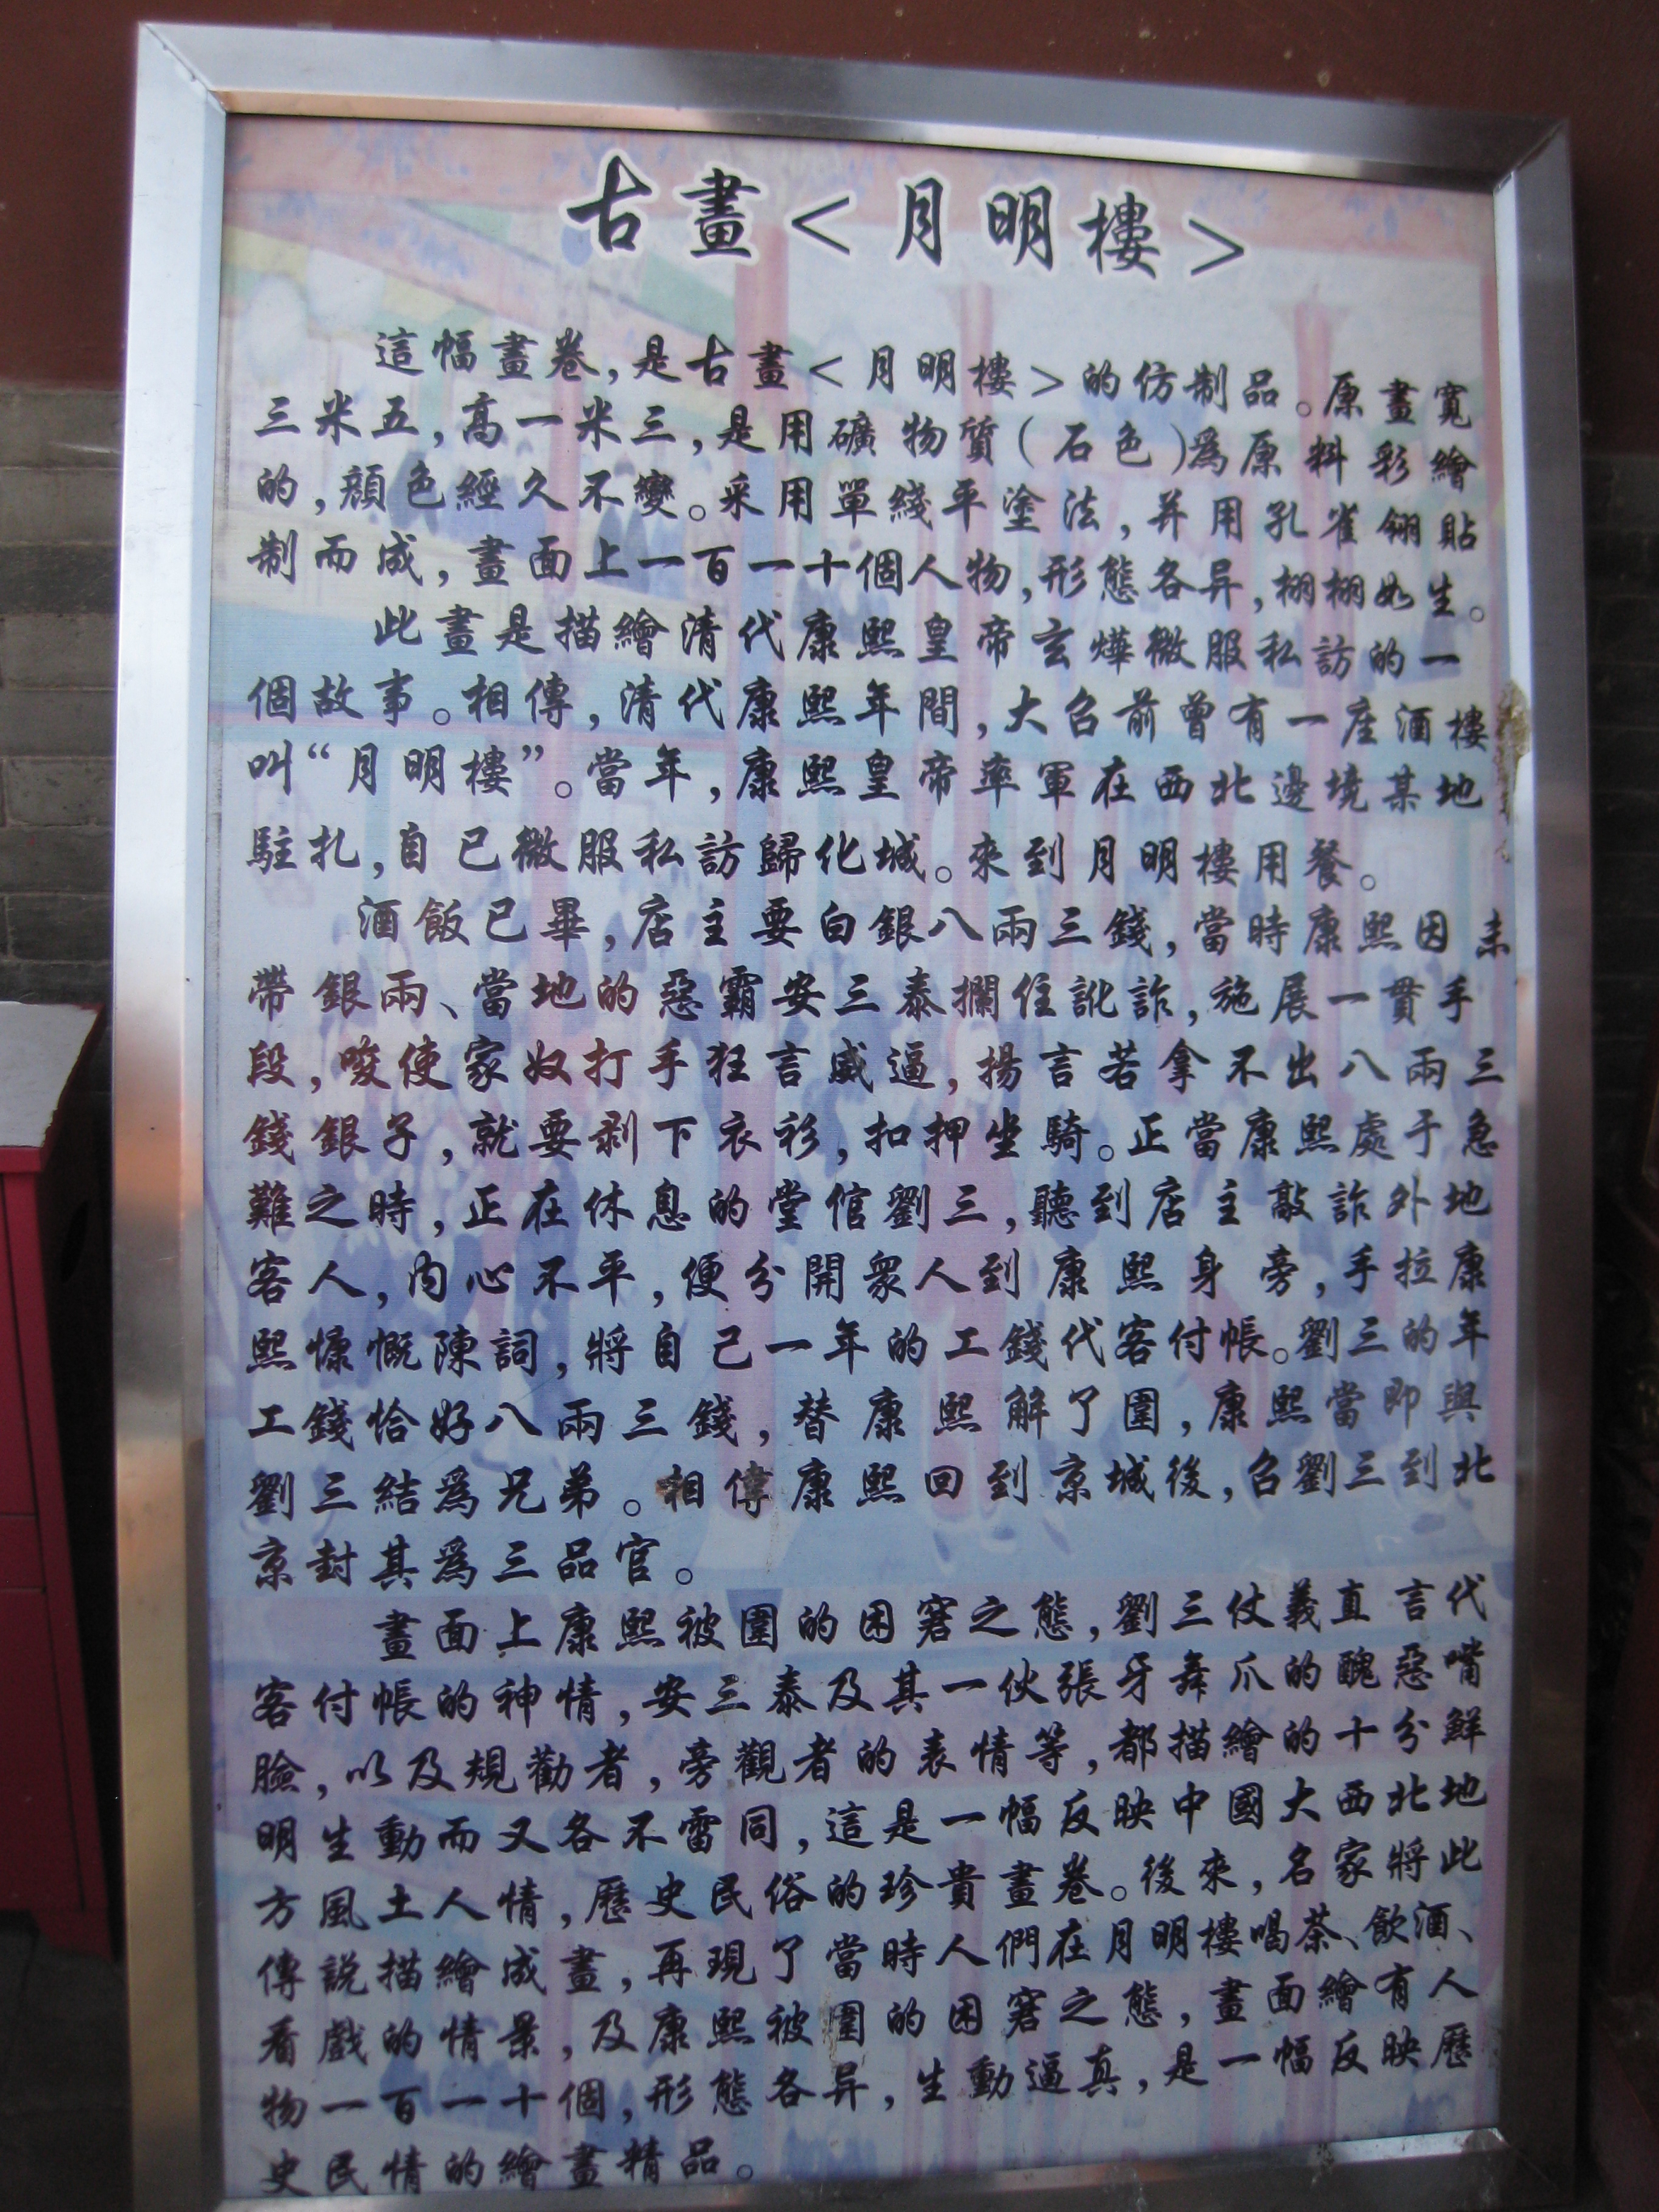 古畫<月明樓>
這幅畫卷,是古畫<月明樓>的仿制品。原畫寬
三米五,高一米三,是用礦物質(石色)爲原料彩繪
的,顏色經久不變。采用單綫平塗法,并用孔雀翎貼
制而成,畫面上一百一十個人物,形態各异,栩栩如生。
此畫是描繪清代康熙皇帝玄燁微服私訪的一
個故事。相傳,清代康熙年間,大召前曾有一座酒樓
叫“月明樓”。當年,康熙皇帝率軍在西北邊境某地
駐扎,自已微服私訪歸化城。來到月明樓用餐。
酒飯已畢,店主要白銀八兩三錢,當時康熙因未
帶銀兩、當地的惡霸安三泰攔住訛詐,施展一貫手
段,唆使家奴打手狂言威逼,揚言若拿不出八兩三
錢銀子,就要剥下衣衫,扣押坐騎。正當康熙處于急
難之時,正在休息的堂倌劉三,聽到店主敲詐外地
客人,内心不平,便分開衆人到康熙身旁,手拉康
熙慷慨陳詞,將自己一年的工錢代客付帳。劉三的年
工錢恰好八兩三錢,替康熙解了圍,康熙當即與
劉三結爲兄弟。相傳康熙回到京城後,召劉三到北
京封其爲三品官。
畫面上康熙被圍的困窘之態,劉三仗義直言代
客付帳的神情,安三泰及其一伙張牙舞爪的醜惡嘴
臉,以及規勸者,旁觀者的表情等,都描繪的十分鮮
明生動而又各不雷同,這是一幅反映中國大西北地
方風土人情,歷史民俗的珍貴畫卷。後來,名家將此
傳説描繪成畫,再現了當時人們在月明樓喝茶、飲酒、
看戲的情景,及康熙被圍的困窘之態,畫面繪有人
物一百一十個,形態各异,生動逼真,是一幅反映歷
史民情的繪畫精品。